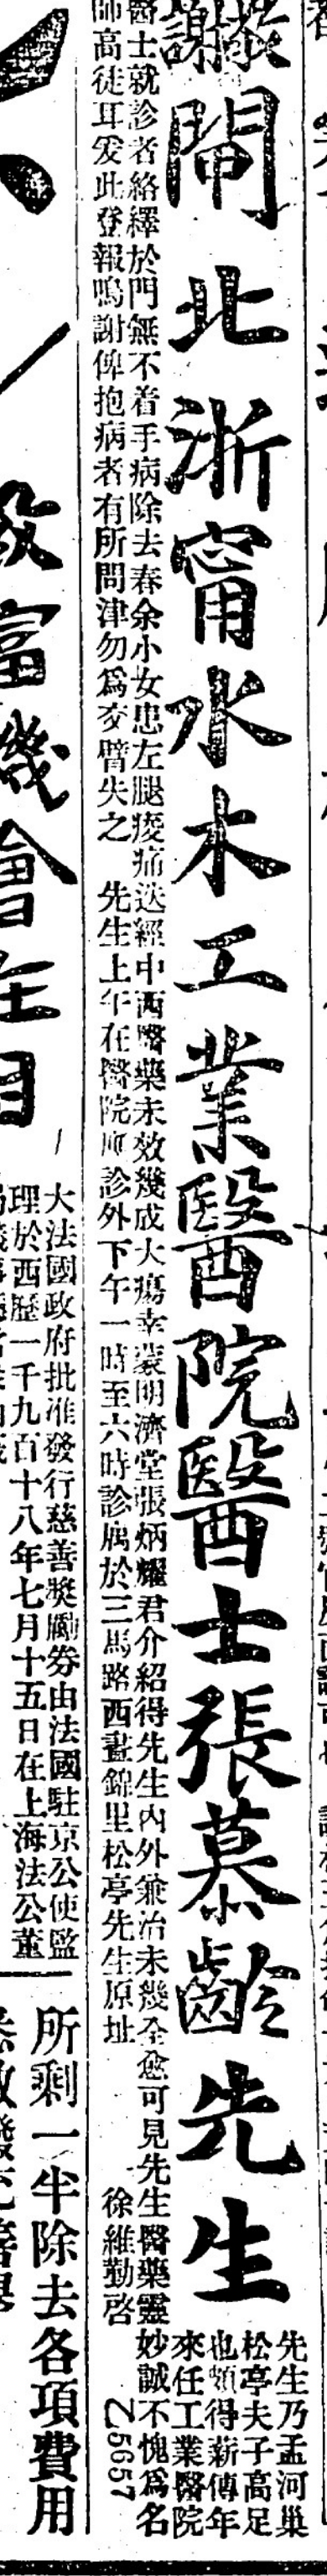 敬謝閘北浙甯水木工業醫院醫士張慕齡先生
先生乃孟河巢
松亭夫子高足
也頗得薪傳年
來任工業醫院
醫士就診者絡繹於門無不着手病除去春余小女患左腿痠痛迭經中西醫藥未效幾成大瘍幸蒙明濟堂張炳耀君介紹得先生內外兼治未幾全愈可見先生醫藥靈妙誠不愧爲名
師高徒耳爰此登報鳴謝俾抱病者有所問津勿爲交臂失之 先生上午在醫院應診外下午一時至六時診寓於三馬路西晝錦里松亭先生原址 徐維勤啓 乙5657
致富機會在目
大法國政府批准發行慈善獎勵劵由法國駐京公使監
理於西歷一千九百十八年七月十五日在上海法公董
所剩一半除去各項費用